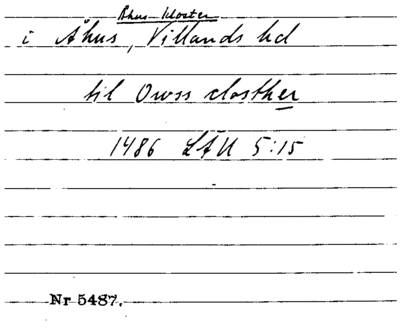 Åhus kloster
i Åhus, Villands hd
til Owss closther
1486 LÄU 5:15
Nr 5487.